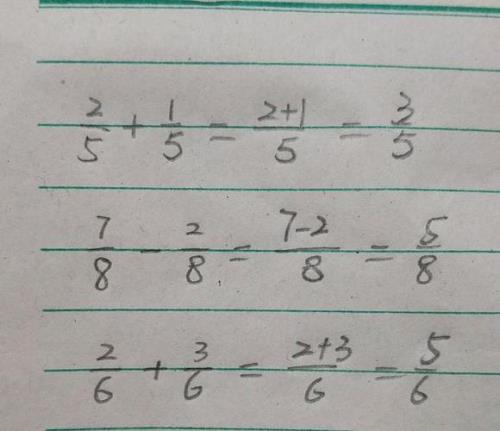 2/5 + 1/5 = 2+1/5 = 3/5
7/8 - 2/8 = 7-2/8 = 5/8
2/6 + 3/6 = 2+3/6 = 5/6